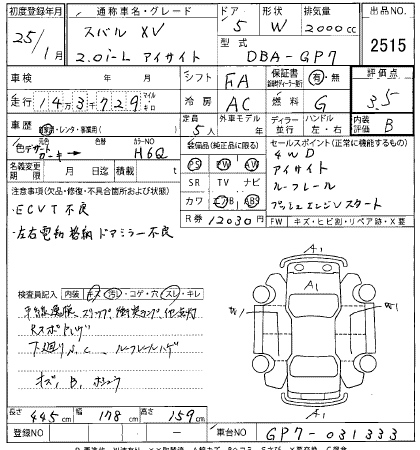 初度登録年月 通称車名・グレード ドア 形状 排気量 出品NO.
25/1月 スバル XV 5 W 2000cc 2515
2.0i-L アイサイト 型式 DBA-GP7
車検 年 月 シフト FA 保証書 有・無 評価点
走行 14万3千729 マイル キロ 冷房 AC 燃料 G 3.5
車歴 自家用・レンタ・事業用( ) 定員 5人 外車モデル 年 ディーラー 並行 ハンドル 左・右 内装評価 B
色 デザートカーキー 色替 カラーNO H6Q 装備品(純正品に限る) セールスポイント(正常に機能するもの)
名義変更期限 月 日迄 積載量 t PS PW AW 4WD
注意事項(欠品・修復・不具合箇所および状態) SR TV ナビ アイサイト
・ECVT不良 カワ エアB ABS ルーフレール
・左右電動格納ドアミラー不良 R券 12030円 プッシュエンジンスタート
FW キズ・ヒビ割・リペア跡・X要
検査員記入 内装 キズ 汚レ・コゲ・穴 スレ・キレ
A1
A1
A1
下廻りS、C、ルーフレールハゲ
キズ、B、
長さ 445cm 幅 178cm 高さ 159cm
登録NO 車台NO GP7-031333